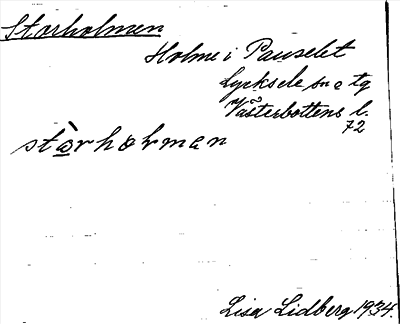 Storholmen
Holme i Pauselet
Lycksele sn o tg
Västerbottens l.
72
stòrhoɫman
Lisa Lidberg 1934.